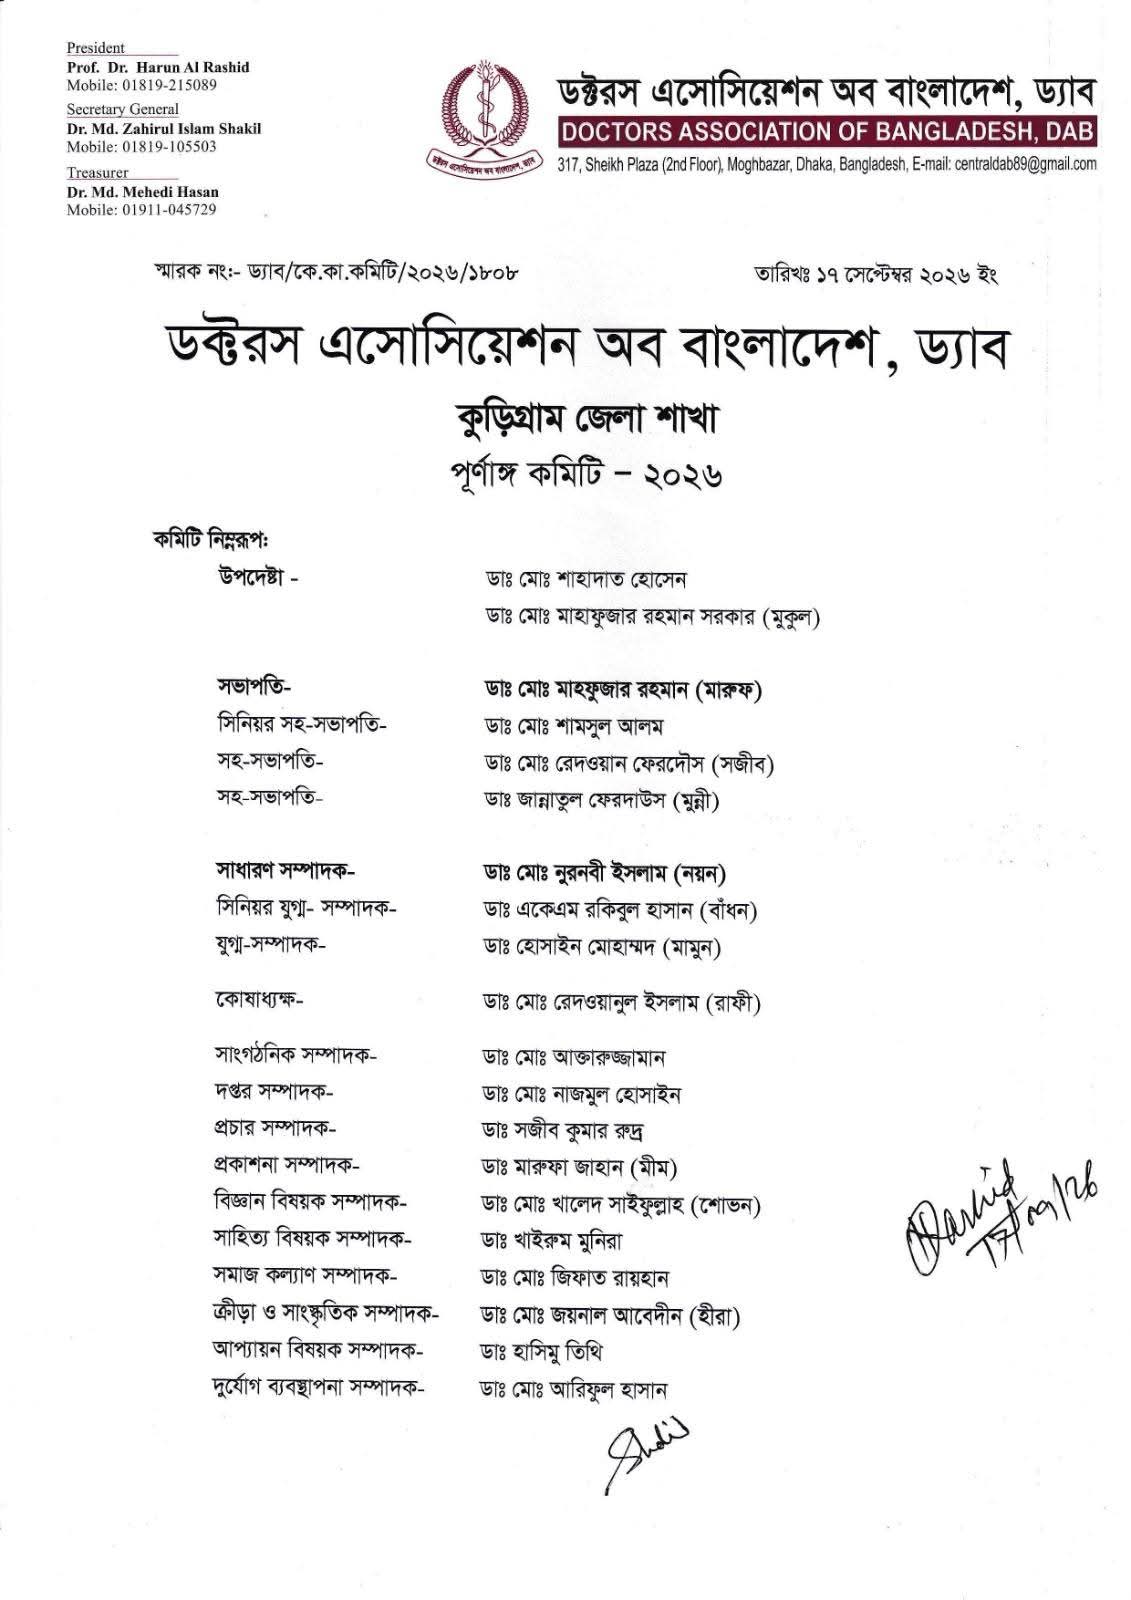 President
Prof. Dr. Harun Al Rashid
Mobile: 01819-215089
Secretary General
Dr. Md. Zahirul Islam Shakil
Mobile: 01819-105503
Treasurer
Dr. Md. Mehedi Hasan
Mobile: 01911-045729
ডক্টরস এসোসিয়েশন অব বাংলাদেশ, ড্যাব
ডক্টরস এসোসিয়েশন অব বাংলাদেশ, ড্যাব
DOCTORS ASSOCIATION OF BANGLADESH, DAB
317, Sheikh Plaza (2nd Floor), Moghbazar, Dhaka, Bangladesh, E-mail: centraldab89@gmail.com
স্মারক নং:- ড্যাব/কে.কা.কমিটি/২০২৬/১৮০৮ তারিখঃ ১৭ সেপ্টেম্বর ২০২৬ ইং
ডক্টরস এসোসিয়েশন অব বাংলাদেশ, ড্যাব
কুড়িগ্রাম জেলা শাখা
পূর্ণাঙ্গ কমিটি – ২০২৬
কমিটি নিম্নরূপঃ
উপদেষ্টা - ডাঃ মোঃ শাহাদাত হোসেন
ডাঃ মোঃ মাহাফুজার রহমান সরকার (মুকুল)
সভাপতি- ডাঃ মোঃ মাহফুজার রহমান (মারুফ)
সিনিয়র সহ-সভাপতি- ডাঃ মোঃ শামসুল আলম
সহ-সভাপতি- ডাঃ মোঃ রেদওয়ান ফেরদৌস (সজীব)
সহ-সভাপতি- ডাঃ জান্নাতুল ফেরদাউস (মুন্নী)
সাধারণ সম্পাদক- ডাঃ মোঃ নুরনবী ইসলাম (নয়ন)
সিনিয়র যুগ্ম- সম্পাদক- ডাঃ একেএম রকিবুল হাসান (বাঁধন)
যুগ্ম-সম্পাদক- ডাঃ হোসাইন মোহাম্মদ (মামুন)
কোষাধ্যক্ষ- ডাঃ মোঃ রেদওয়ানুল ইসলাম (রাফী)
সাংগঠনিক সম্পাদক- ডাঃ মোঃ আক্তারুজ্জামান
দপ্তর সম্পাদক- ডাঃ মোঃ নাজমুল হোসাইন
প্রচার সম্পাদক- ডাঃ সজীব কুমার রুদ্র
প্রকাশনা সম্পাদক- ডাঃ মারুফা জাহান (মীম)
বিজ্ঞান বিষয়ক সম্পাদক- ডাঃ মোঃ খালেদ সাইফুল্লাহ (শোভন)
সাহিত্য বিষয়ক সম্পাদক- ডাঃ খাইরুম মুনিরা
সমাজ কল্যাণ সম্পাদক- ডাঃ মোঃ জিফাত রায়হান
ক্রীড়া ও সাংস্কৃতিক সম্পাদক- ডাঃ মোঃ জয়নাল আবেদীন (হীরা)
আপ্যায়ন বিষয়ক সম্পাদক- ডাঃ হাসিমু তিথি
দুর্যোগ ব্যবস্থাপনা সম্পাদক- ডাঃ মোঃ আরিফুল হাসান